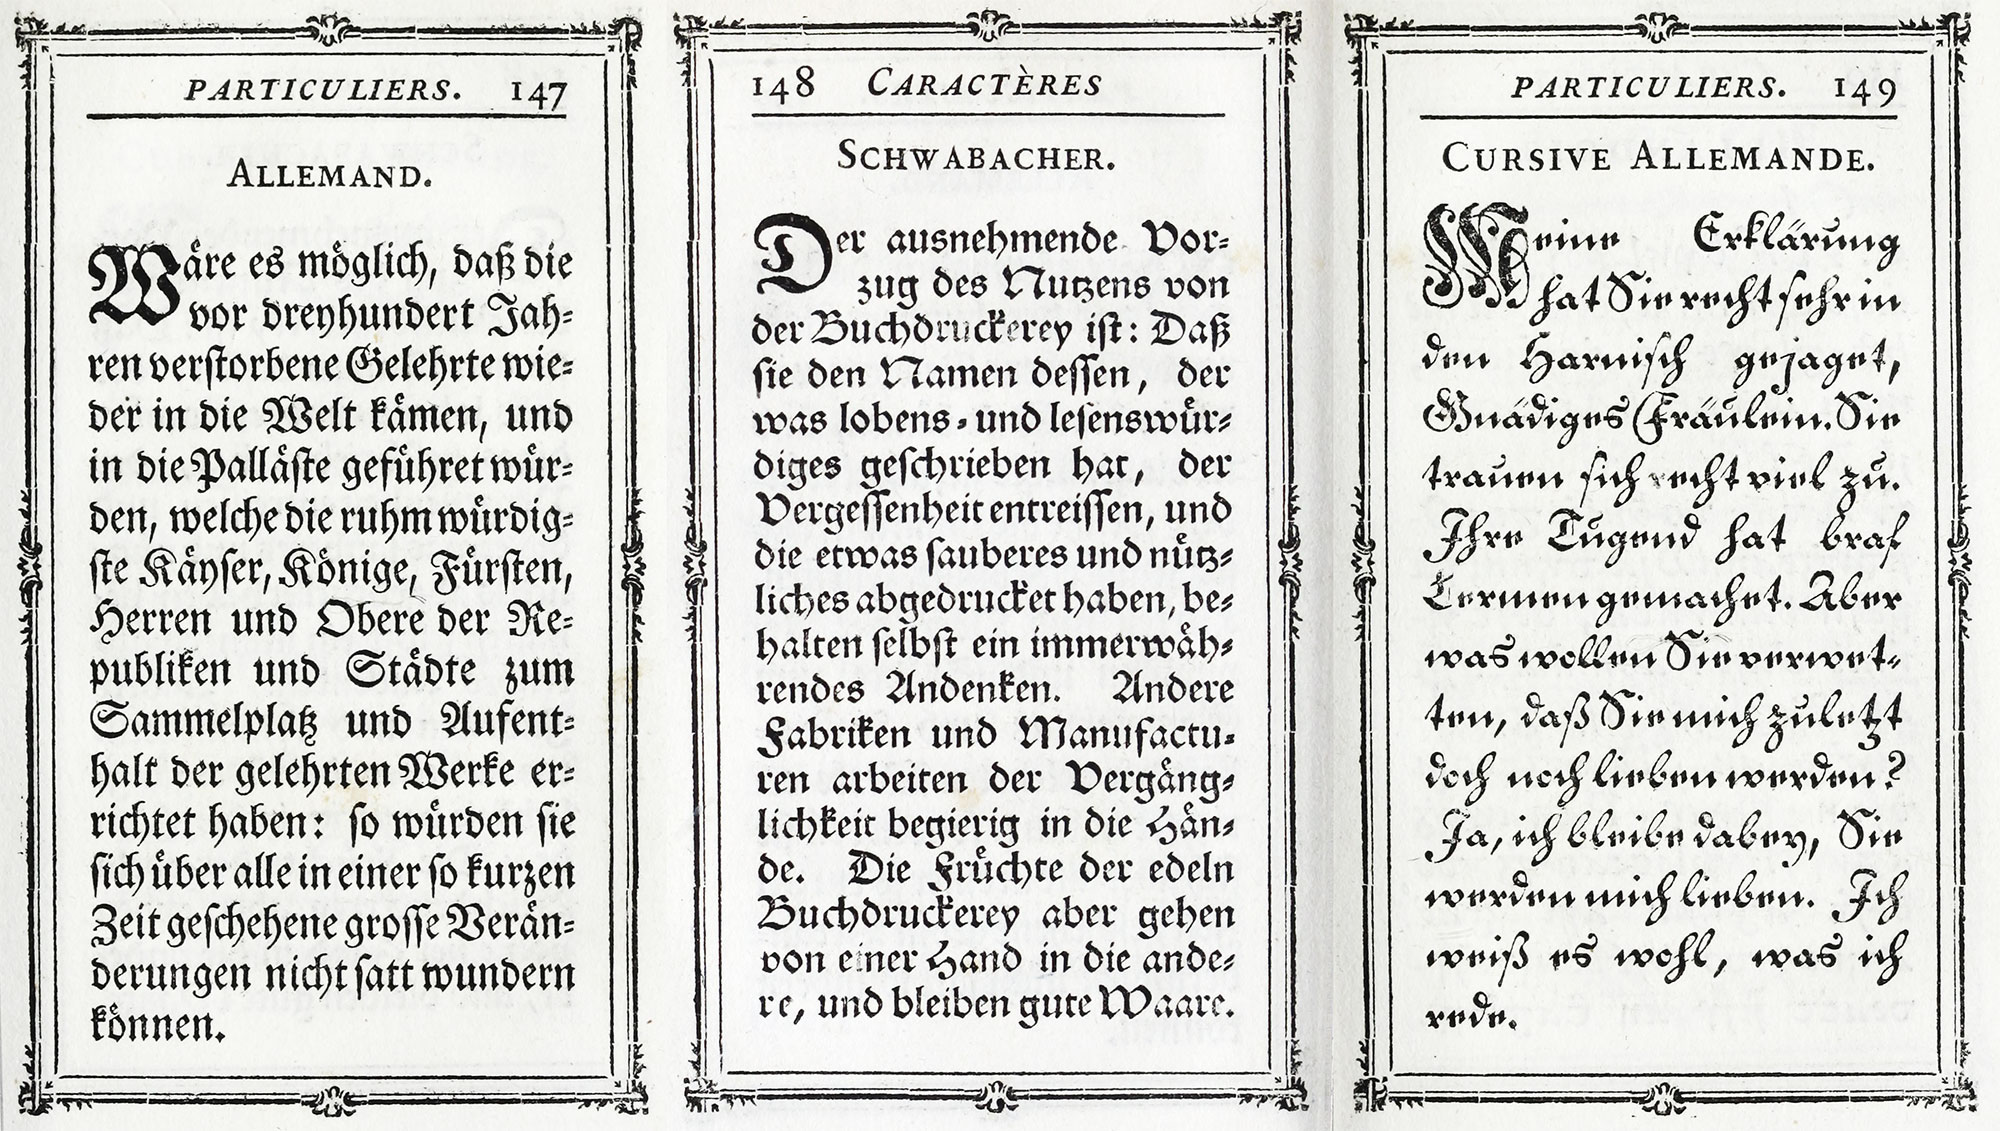 PARTICULIERS. 147
ALLEMAND.
Wäre es möglich, daß die
vor dreyhundert Jah-
ren verstorbene Gelehrte wie-
der in die Welt kämen, und
in die Palläste geführet wür-
den, welche die ruhmwürdig-
ste Käyser, Könige, Fürsten,
Herren und Obere der Re-
publiken und Städte zum
Sammelplatz und Aufent-
halt der gelehrten Werke er-
richtet haben: so würden sie
sich über alle in einer so kurzen
Zeit geschehene grosse Verän-
derungen nicht satt wundern
können.
148 CARACTÈRES
SCHWABACHER.
Der ausnehmende Vor-
zug des Nutzens von
der Buchdruckerey ist: Daß
sie den Namen dessen, der
was lobens- und lesenswür-
diges geschrieben hat, der
Vergessenheit entreissen, und
die etwas sauberes und nütz-
liches abgedrucket haben, be-
halten selbst ein immerwäh-
rendes Andenken. Andere
Fabriken und Manufactu-
ren arbeiten der Vergäng-
lichkeit begierig in die Hän-
de. Die Früchte der edeln
Buchdruckerey aber gehen
von einer Hand in die ande-
re, und bleiben gute Waare.
PARTICULIERS. 149
CURSIVE ALLEMANDE.
Meine Erklärung
hat Sie recht sehr in
den Harnisch gejaget,
Gnädiges Fräulein. Sie
trauen sich recht viel zu.
Ihre Tugend hat braf
Lermen gemachet. Aber
was wollen Sie verwet-
ten, daß Sie mich zuletzt
doch noch lieben werden?
Ja, ich bleibe dabey, Sie
werden mich lieben. Ich
weiß es wohl, was ich
rede.